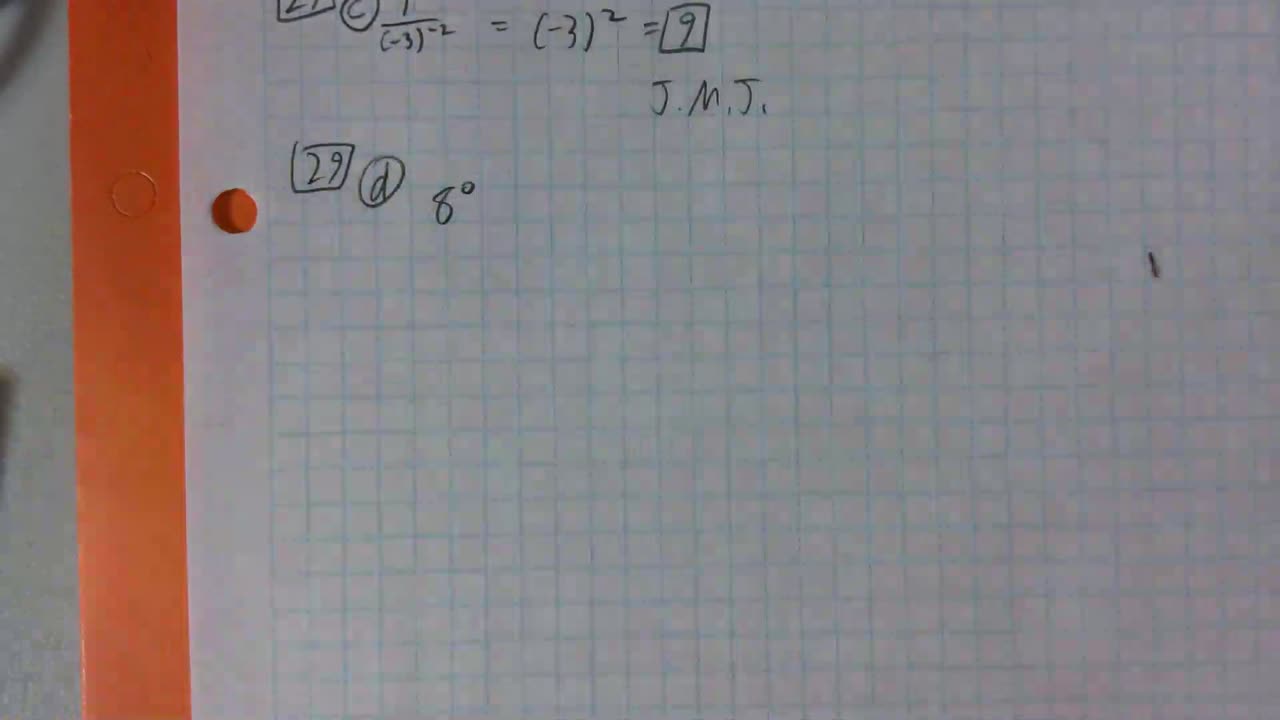 29 c 1/(-3)⁻² = (-3)² = 9
J.M.J.
29 d 8⁰